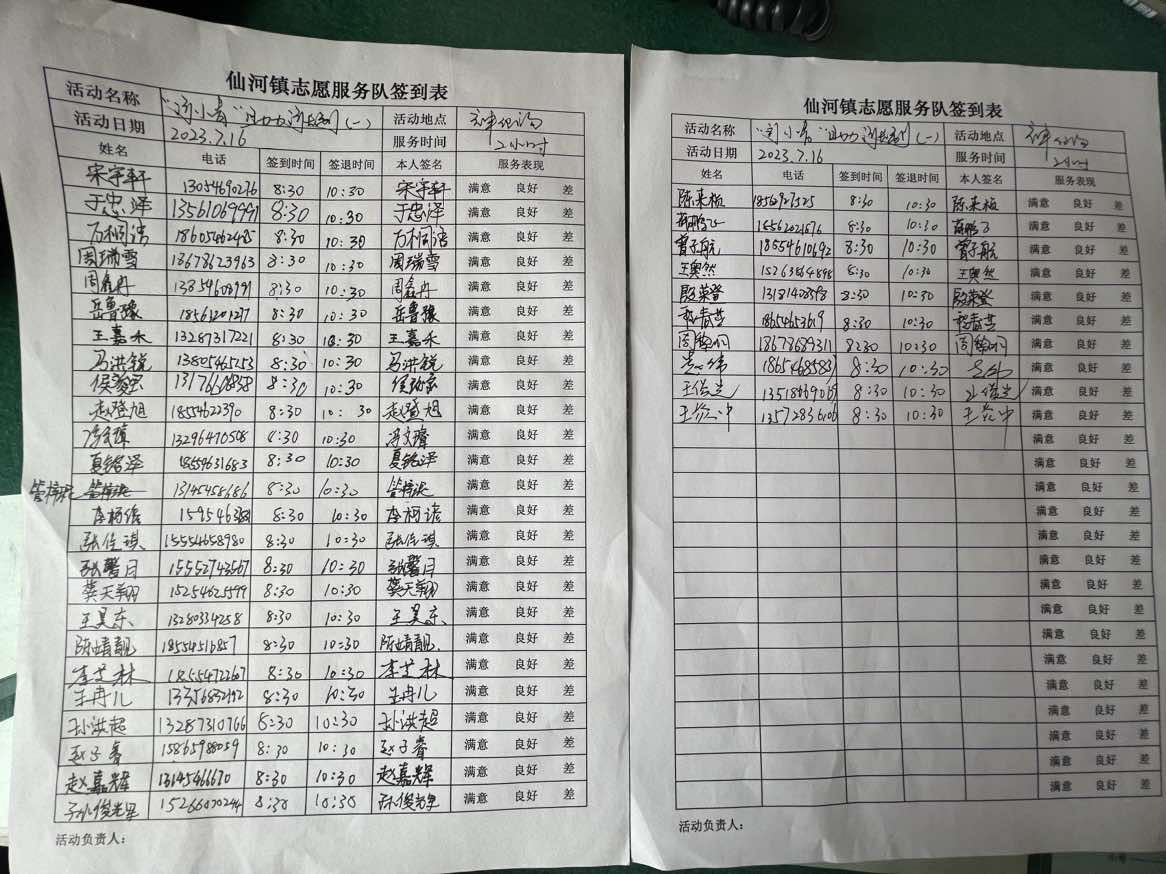 仙河镇志愿服务队签到表
活动名称 活动地点
活动日期 2023.7.16 服务时间 2小时
姓名 电话 签到时间 签退时间 本人签名 服务表现
宋宇轩 13054690276 8:30 10:30 宋宇轩 满意 良好 差
于忠泽 13561069991 8:30 10:30 于忠泽 满意 良好 差
万桐语 18605462425 8:30 10:30 万桐语 满意 良好 差
周瑞雪 18678623963 8:30 10:30 周瑞雪 满意 良好 差
周鑫冉 13854608991 8:30 10:30 周鑫冉 满意 良好 差
岳鲁豫 18561201277 8:30 10:30 岳鲁豫 满意 良好 差
王嘉禾 13287317221 8:30 10:30 王嘉禾 满意 良好 差
马洪锐 13805465253 8:30 10:30 马洪锐 满意 良好 差
8:30 10:30 满意 良好 差
赵登旭 18554622390 8:30 10:30 赵登旭 满意 良好 差
13296470508 8:30 10:30 冯文璋 满意 良好 差
夏铭泽 18554631683 8:30 10:30 夏铭泽 满意 良好 差
13145458686 8:30 10:30 满意 良好 差
李柯谚 8:30 10:30 李柯谚 满意 良好 差
张佳琪 15554658980 8:30 10:30 张佳琪 满意 良好 差
张馨月 15552743567 8:30 10:30 张馨月 满意 良好 差
龚天翔 15254625999 8:30 10:30 龚天翔 满意 良好 差
王昊东 13280334258 8:30 10:30 王昊东 满意 良好 差
陈婧靓 18554516857 8:30 10:30 陈婧靓 满意 良好 差
李芝林 18554722667 8:30 10:30 李芝林 满意 良好 差
王冉儿 8:30 10:30 王冉儿 满意 良好 差
孙洪超 13287310766 8:30 10:30 孙洪超 满意 良好 差
赵子睿 15865988059 8:30 10:30 赵子睿 满意 良好 差
赵嘉辉 1314546670 8:30 10:30 赵嘉辉 满意 良好 差
孙俊光 15266020244 8:30 10:30 孙俊光 满意 良好 差
活动负责人：
仙河镇志愿服务队签到表
活动名称 活动地点
活动日期 2023.7.16 服务时间 2小时
姓名 电话 签到时间 签退时间 本人签名 服务表现
陈来桢 1856927525 8:30 10:30 陈来桢 满意 良好 差
15562021576 8:30 10:30 满意 良好 差
曾子航 18554610692 8:30 10:30 曾子航 满意 良好 差
王奥然 15263864898 8:30 10:30 王奥然 满意 良好 差
殷荣登 13181408898 8:30 10:30 殷荣登 满意 良好 差
程春芸 18654653619 8:30 10:30 程春芸 满意 良好 差
18678689311 8:30 10:30 满意 良好 差
18654685831 8:30 10:30 满意 良好 差
王俊光 13518469069 8:30 10:30 王俊光 满意 良好 差
13572836106 8:30 10:30 满意 良好 差
满意 良好 差
满意 良好 差
满意 良好 差
满意 良好 差
满意 良好 差
满意 良好 差
满意 良好 差
满意 良好 差
满意 良好 差
满意 良好 差
满意 良好 差
满意 良好 差
满意 良好 差
满意 良好 差
满意 良好 差
活动负责人：